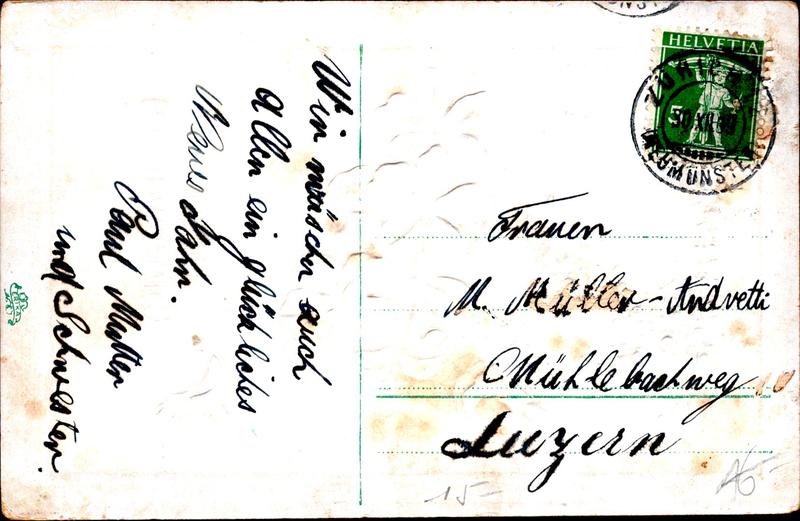 Wir wünschn auch
allen ein glückliches
Neues Jahr.
Paul Mutter
und Schwester.
HELVETIA
5
ZÜRICH
30.XII.09
NEUMÜNSTER
Frauen
M. Müller-Andretti
Mühlebachweg 10
Luzern
15-